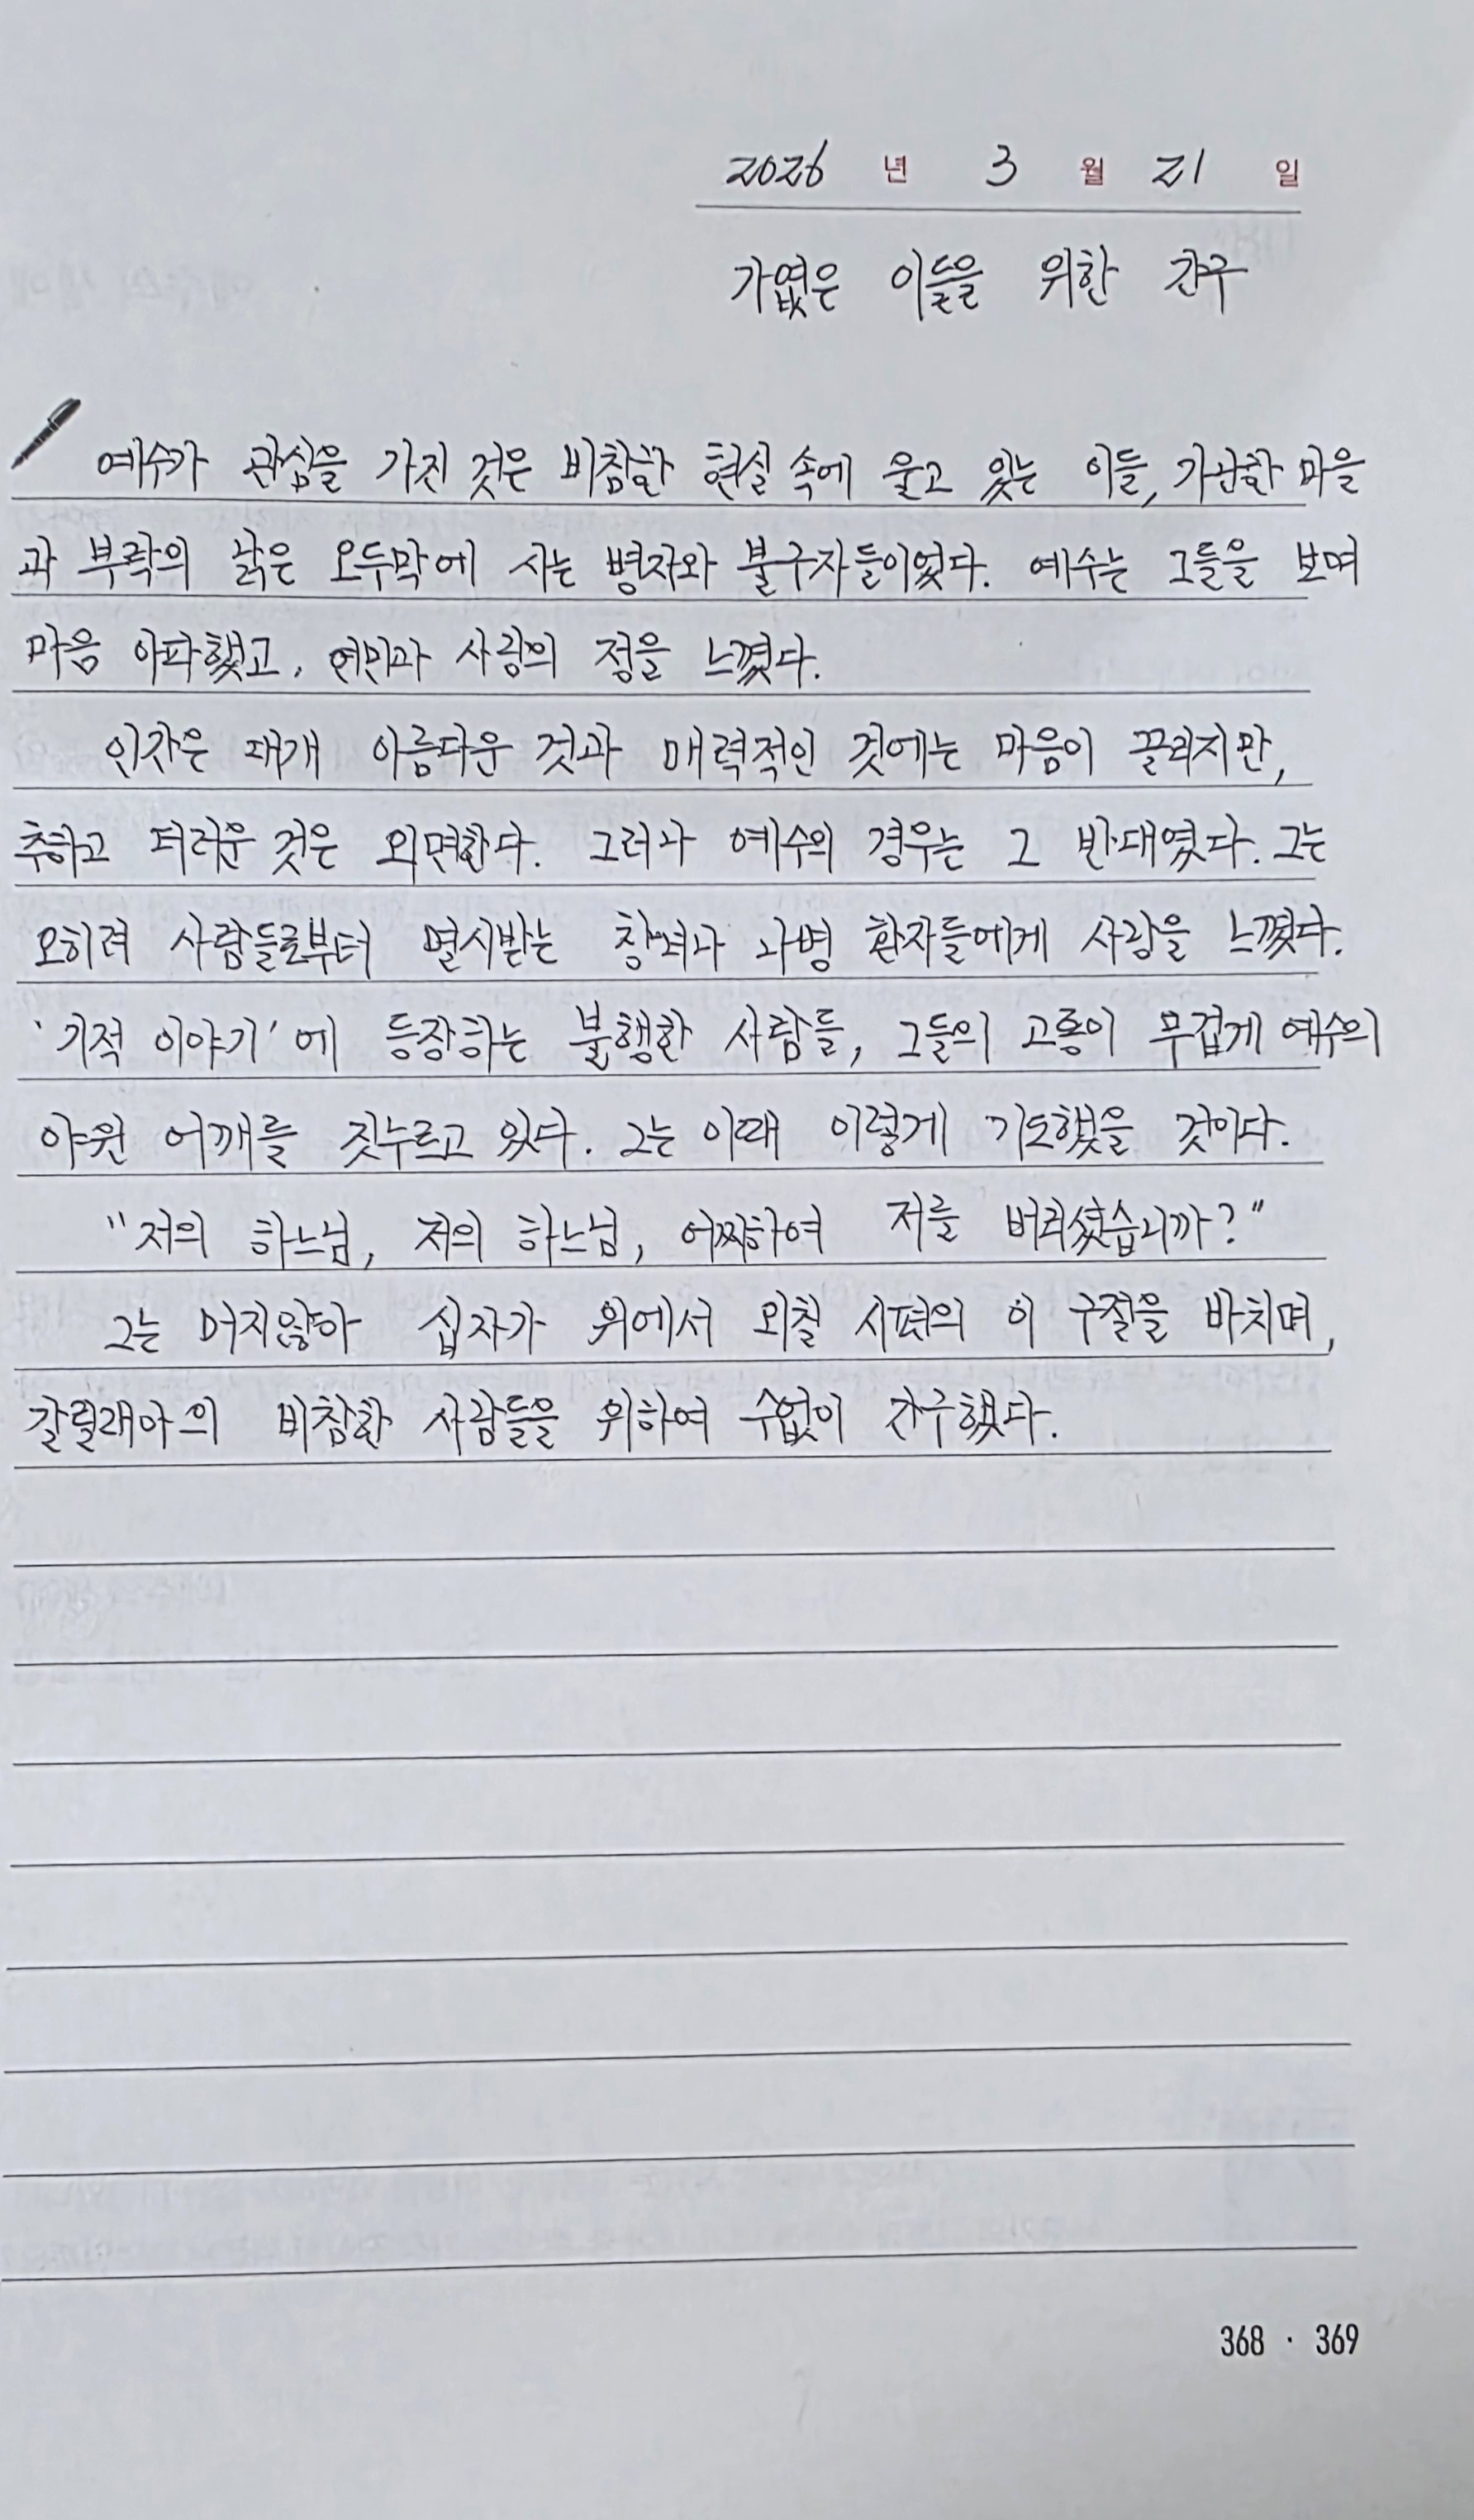 2026 년 3 월 21 일
가엾은 이들을 위한 간구
예수가 관심을 가진 것은 비참한 현실 속에 울고 있는 이들, 가난한 마을
과 부락의 낡은 오두막에 사는 병자와 불구자들이었다. 예수는 그들을 보며
마음 아파했고, 연민과 사랑의 정을 느꼈다.
인간은 대개 아름다운 것과 매력적인 것에는 마음이 끌리지만,
추하고 더러운 것은 외면한다. 그러나 예수의 경우는 그 반대였다. 그는
오히려 사람들로부터 멸시받는 창녀나 나병 환자들에게 사랑을 느꼈다.
'기적 이야기'에 등장하는 불행한 사람들, 그들의 고통이 무겁게 예수의
야윈 어깨를 짓누르고 있다. 그는 이때 이렇게 기도했을 것이다.
"저의 하느님, 저의 하느님, 어찌하여 저를 버리셨습니까?"
그는 머지않아 십자가 위에서 외칠 시편의 이 구절을 바치며,
갈릴래아의 비참한 사람들을 위하여 수없이 간구했다.
368 · 369